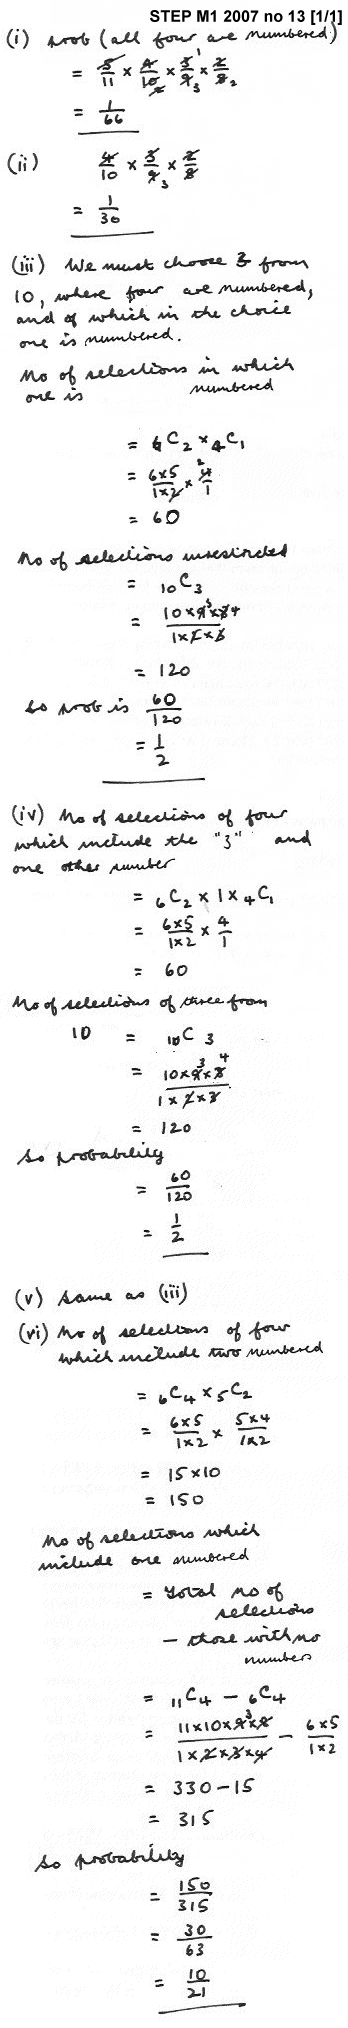 STEP M1 2007 no 13 [1/1]
(i) prob (all four are numbered)
= 5/11 × 4/10 × 3/9 × 2/8
= 1/66
(ii) 4/10 × 3/9 × 2/8
= 1/30
(iii) We must choose 3 from
10, where four are numbered,
and of which in the choice
one is numbered.
No of selections in which
one is numbered
= 6C2 × 4C1
= 6×5/1×2 × 4/1
= 60
No of selections unrestricted
= 10C3
= 10×9×8/1×2×3
= 120
So prob is 60/120
= 1/2
(iv) No of selections of four
which include the "3" and
one other number
= 6C2 × 1 × 4C1
= 6×5/1×2 × 4/1
= 60
No of selections of three from
10 = 10C3
= 10×9×8/1×2×3
= 120
So probability
= 60/120
= 1/2
(v) Same as (iii)
(vi) No of selections of four
which include two numbered
= 6C4 × 5C2
= 6×5/1×2 × 5×4/1×2
= 15×10
= 150
No of selections which
include one numbered
= Total no of
selections
– those with no
numbers
= 11C4 – 6C4
= 11×10×9×8/1×2×3×4 – 6×5/1×2
= 330–15
= 315
So probability
= 150/315
= 30/63
= 10/21